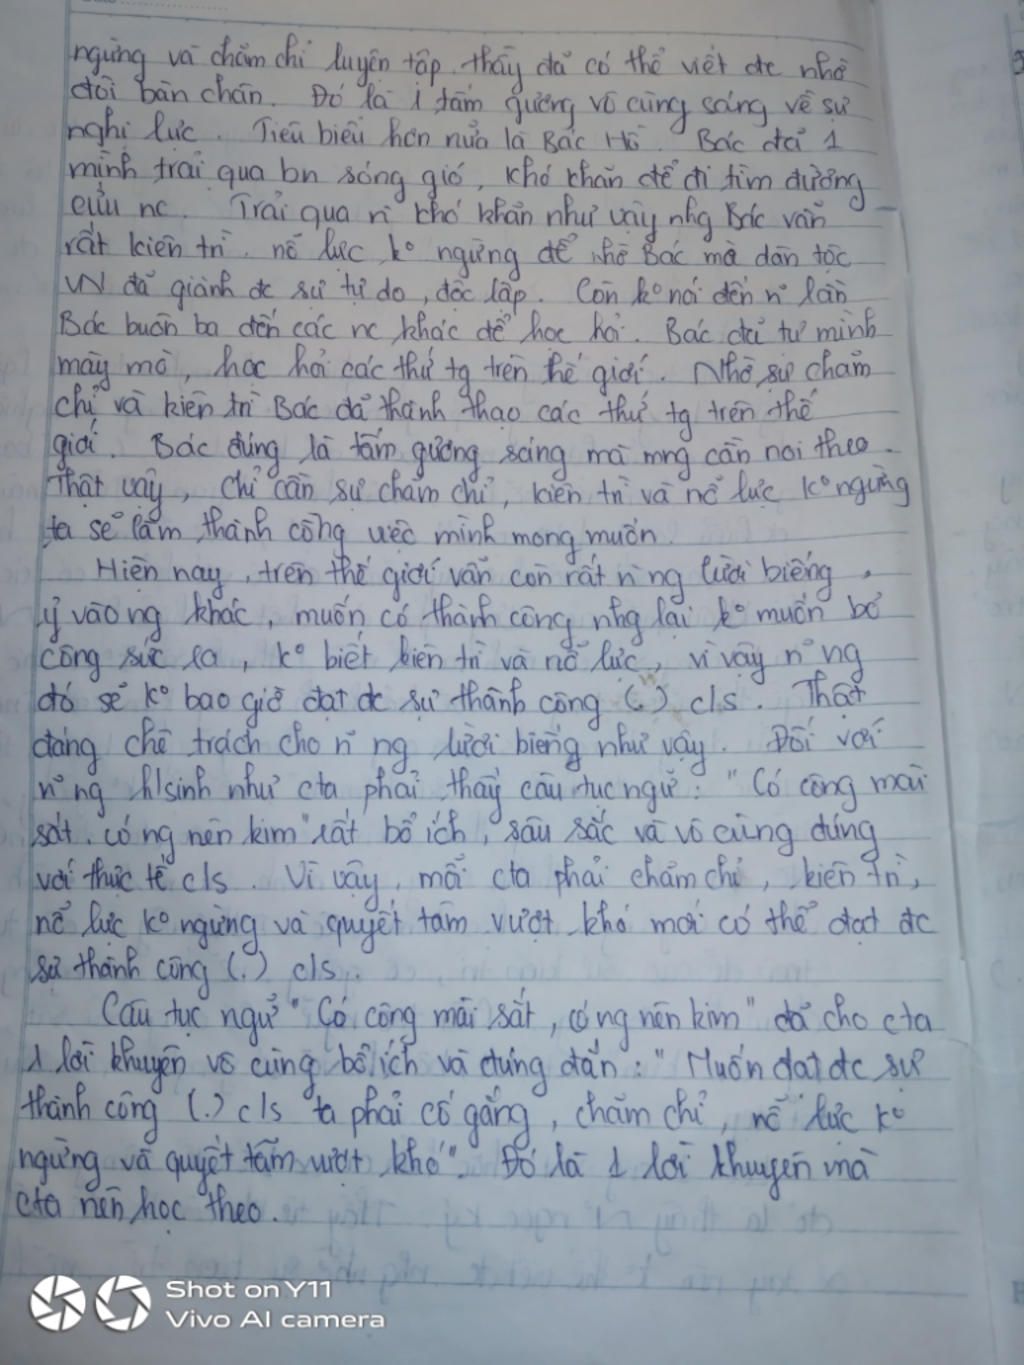 ngừng và chăm chỉ luyện tập. thầy đã có thể viết đc nhờ
đôi bàn chân. Đó là 1 tấm gương vô cùng sáng về sự
nghị lực. Tiêu biểu hơn nữa là Bác Hồ. Bác đã 1
mình trải qua bn sóng gió, khó khăn để đi tìm đường
cứu nc. Trải qua n~ khó khăn như vậy nhg Bác vẫn
rất kiên trì. nỗ lực k° ngừng để nhờ Bác mà dân tộc
VN đã giành đc sự tự do, độc lập. Còn k° nói đến n~ lần
Bác buôn ba đến các nc khác để học hỏi. Bác đã tự mình
mày mò, học hỏi các thứ tg trên thế giới. Nhờ sự chăm
chỉ và kiên trì Bác đã thành thạo các thứ tg trên thế
giới. Bác đúng là tấm gương sáng mà mng cần noi theo.
Thật vậy, chỉ cần sự chăm chỉ, kiên trì và nỗ lực k° ngừng
ta sẽ làm thành công việc mình mong muốn.
Hiện nay, trên thế giới vẫn còn rất n~ ng lười biếng,
ỷ vào ng khác, muốn có thành công nhg lại k° muốn bỏ
công sức ra, k° biết kiên trì và nỗ lực, vì vậy n~ ng
đó sẽ k° bao giờ đạt đc sự thành công (.) c/s. Thật
đáng chê trách cho n~ ng lười biếng như vậy. Đối với
n~ ng h/sinh như cta phải thấy câu tục ngữ: "Có công mài
sắt, có ng nên kim" rất bổ ích, sâu sắc và vô cùng đúng
với thực tế c/s. Vì vậy, mỗi cta phải chăm chỉ, kiên trì,
nỗ lực k° ngừng và quyết tâm vượt khó mới có thể đạt đc
sự thành công (.) c/s.
Câu tục ngữ "Có công mài sắt, có ng nên kim" đã cho cta
1 lời khuyên vô cùng bổ ích và đúng đắn: "Muốn đạt đc sự
thành công (.) c/s ta phải cố gắng, chăm chỉ, nỗ lực k°
ngừng và quyết tâm vượt khó". Đó là 1 lời khuyên mà
cta nên học theo.
Shot on Y11
Vivo AI camera